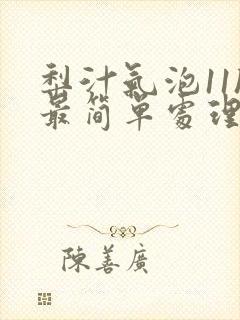 梨汁氣泡11
最簡單處理
陳善廣